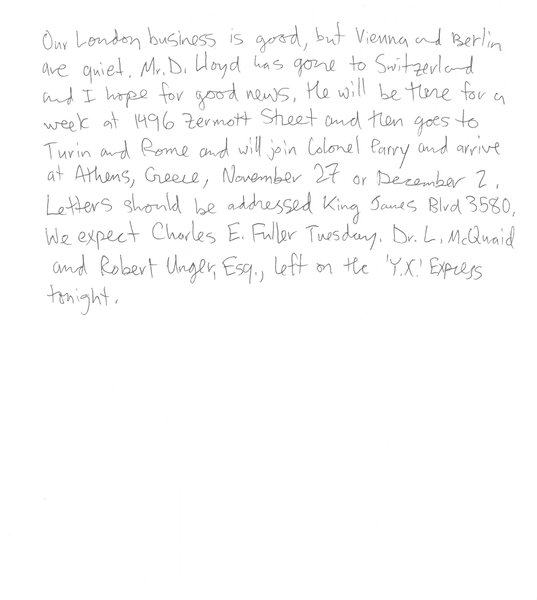 Our London business is good, but Vienna and Berlin
are quiet. Mr. D. Lloyd has gone to Switzerland
and I hope for good news. He will be there for a
week at 1496 Zermott Street and then goes to
Turin and Rome and will join Colonel Parry and arrive
at Athens, Greece, November 27 or December 2.
Letters should be addressed King James Blvd 3580.
We expect Charles E. Fuller Tuesday. Dr. L. McQuaid
and Robert Unger, Esq., left on the 'Y.X.' Express
tonight.